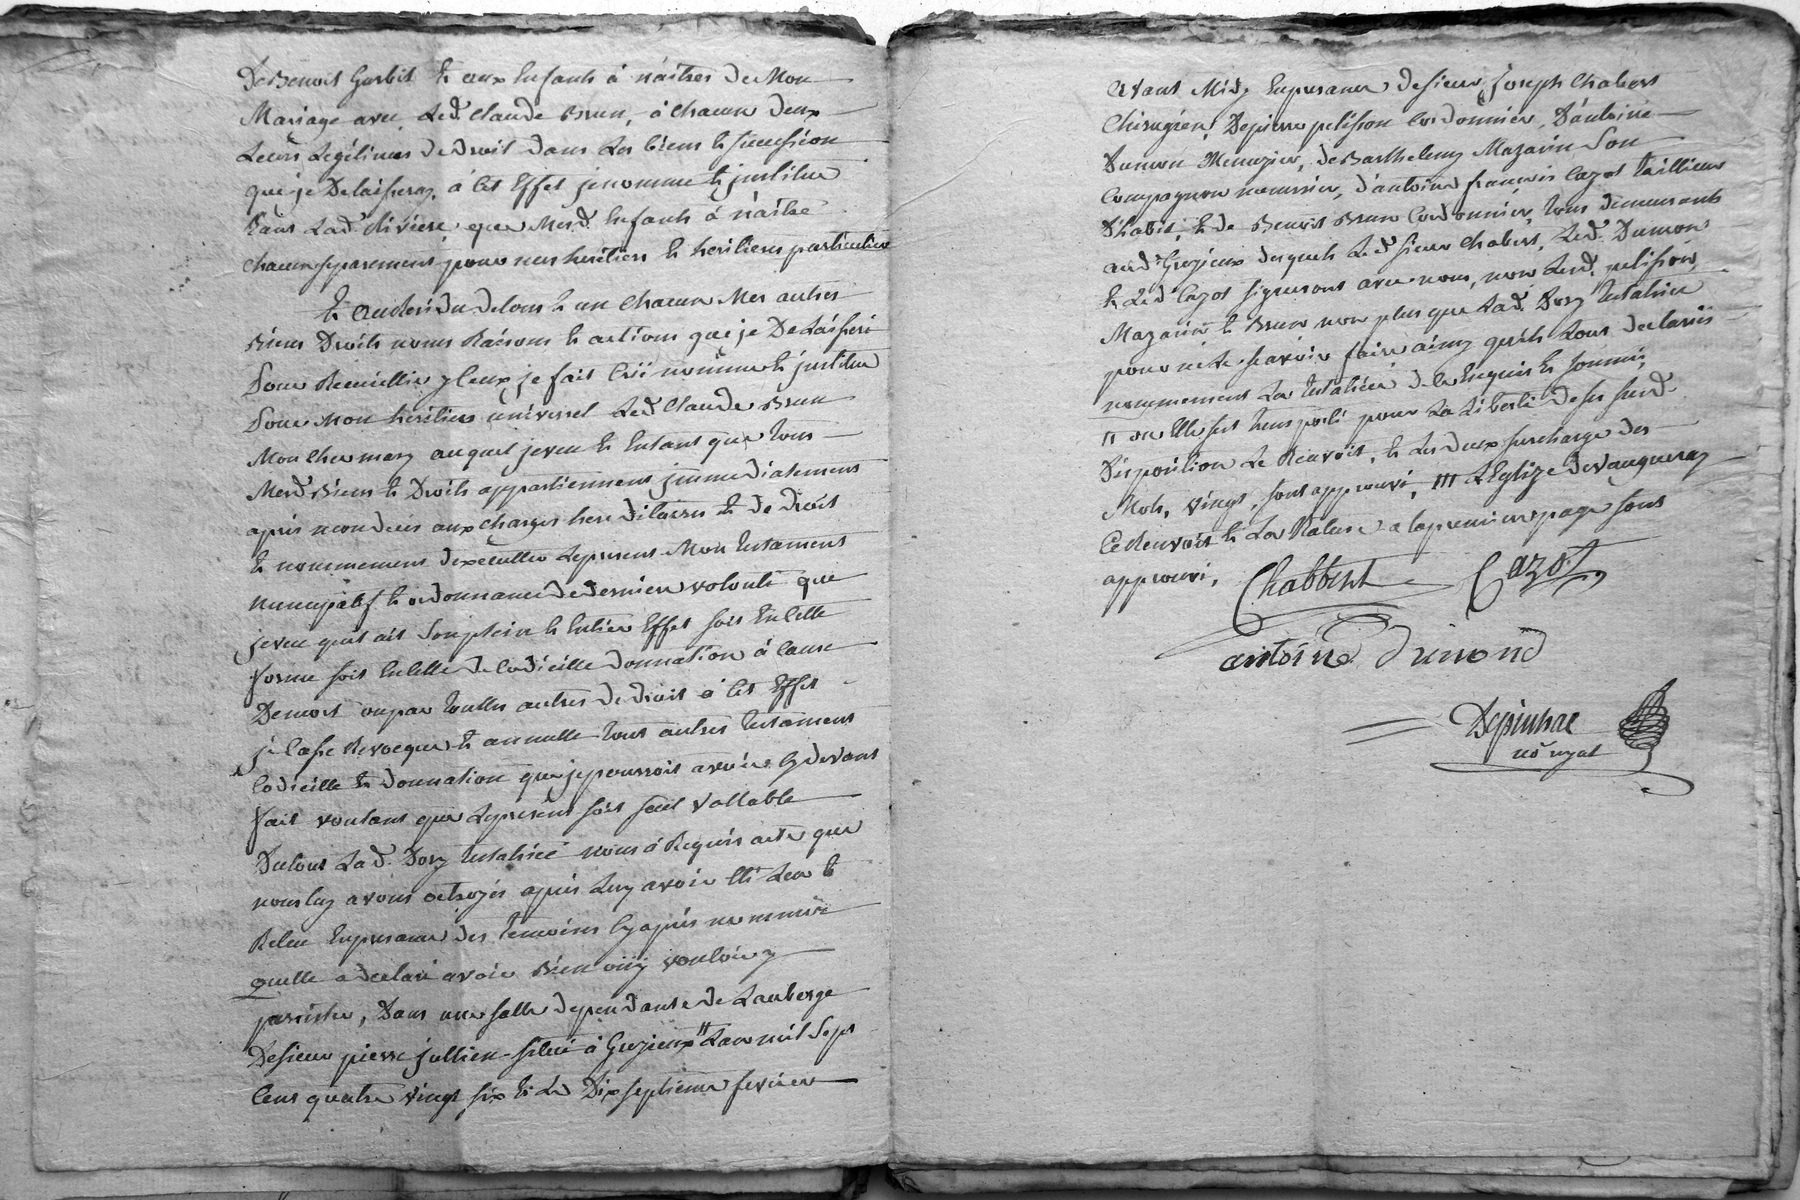 De Benoit Garbit & aux Enfants à naitres de Mon
Mariage avec Led. Claude Brun, à chacun deux
Leurs Legétimes de droit dans Les biens & sucession
que je Delaisseray, à Cet Effet je nomme & jnstitue
Dans Lad. mes d. Enfants à naitre
chacun separement pour mes herétiers & heritiers particuliers
Et Au Resédu de tous & un chacun Mes autres
Biens Droits noms Raisons & actions que je Delaisseré
Pour Recuiellier yceux je fait Créé nomme & jnstitue
Pour Mon heritier univerrel Led. Claude Brun
Mon cher mary auquel je veu & Entant que tous
Mesd. Biens & Droits appartiennent jmmediatement
après mon decès aux charges hereditaires & de droit
& nommement d'executter Le present Mon testament
Nuncupatif & ordonnance de derniere volonté que
je veu quil ait Son plein & Entier Effet soit En celle
forme soit En celle de Codicille donnation à cause
De mort ou par touttes autres de droit à Cet Effet
je Casse Revocque & annulle tous autres testament
Codicille & donnation que je pourrois avoir Cy devant
fait voulant que Le present soit seul Vallable
Du tout Lad. Dory testatrice nous à Requis acte que
nous luy avons octroyés après Luy avoir Eté Leu &
Releu En presance des temoins Cy après nommés
quelle a declaré avoir Bien oüy vouloir y
percister, Dans une salle dependante de Lauberge
De sieur pierre jullien situé à Grezieux " Lan mil sept
Cent quatre vingt six & Le Dix septieme fevrier
avant Midy En presance de sieur joseph Chabert
Chirugien, De pierre pelisson Cordonnier, D'antoine
Dumon Menuzier, de Barthelemy Mazarin Son
Compagnon menusier, d'antoine francois Cazot tallieur
D'habit, & de Benoit Brun Cordonnier, tous demeurants
aud. Grezieux desquels Led. sieur Chabert, Led. Dumon
& Led. Cazot signeront avec nous, non Lesd. pelisson,
Mazarin & Brun non plus que Lad. Dory testatrice
pour ne le sçavoir faire ainsy quils L'ont declarés
nommement La testatrice de ce Enquis & sommés,
" ou Elle sest transporté pour La Liberté de ses susd.
Disposition Le Renvoit, & Les deux surcharge des
Mots, vingt, sont approuvé, /// LEglize de Vaugneray
Ce Renvoit & La Rature a la premiere page sont
approuvé,
Chabbert Cazot
antoine dumond
Depinhac
nore royal